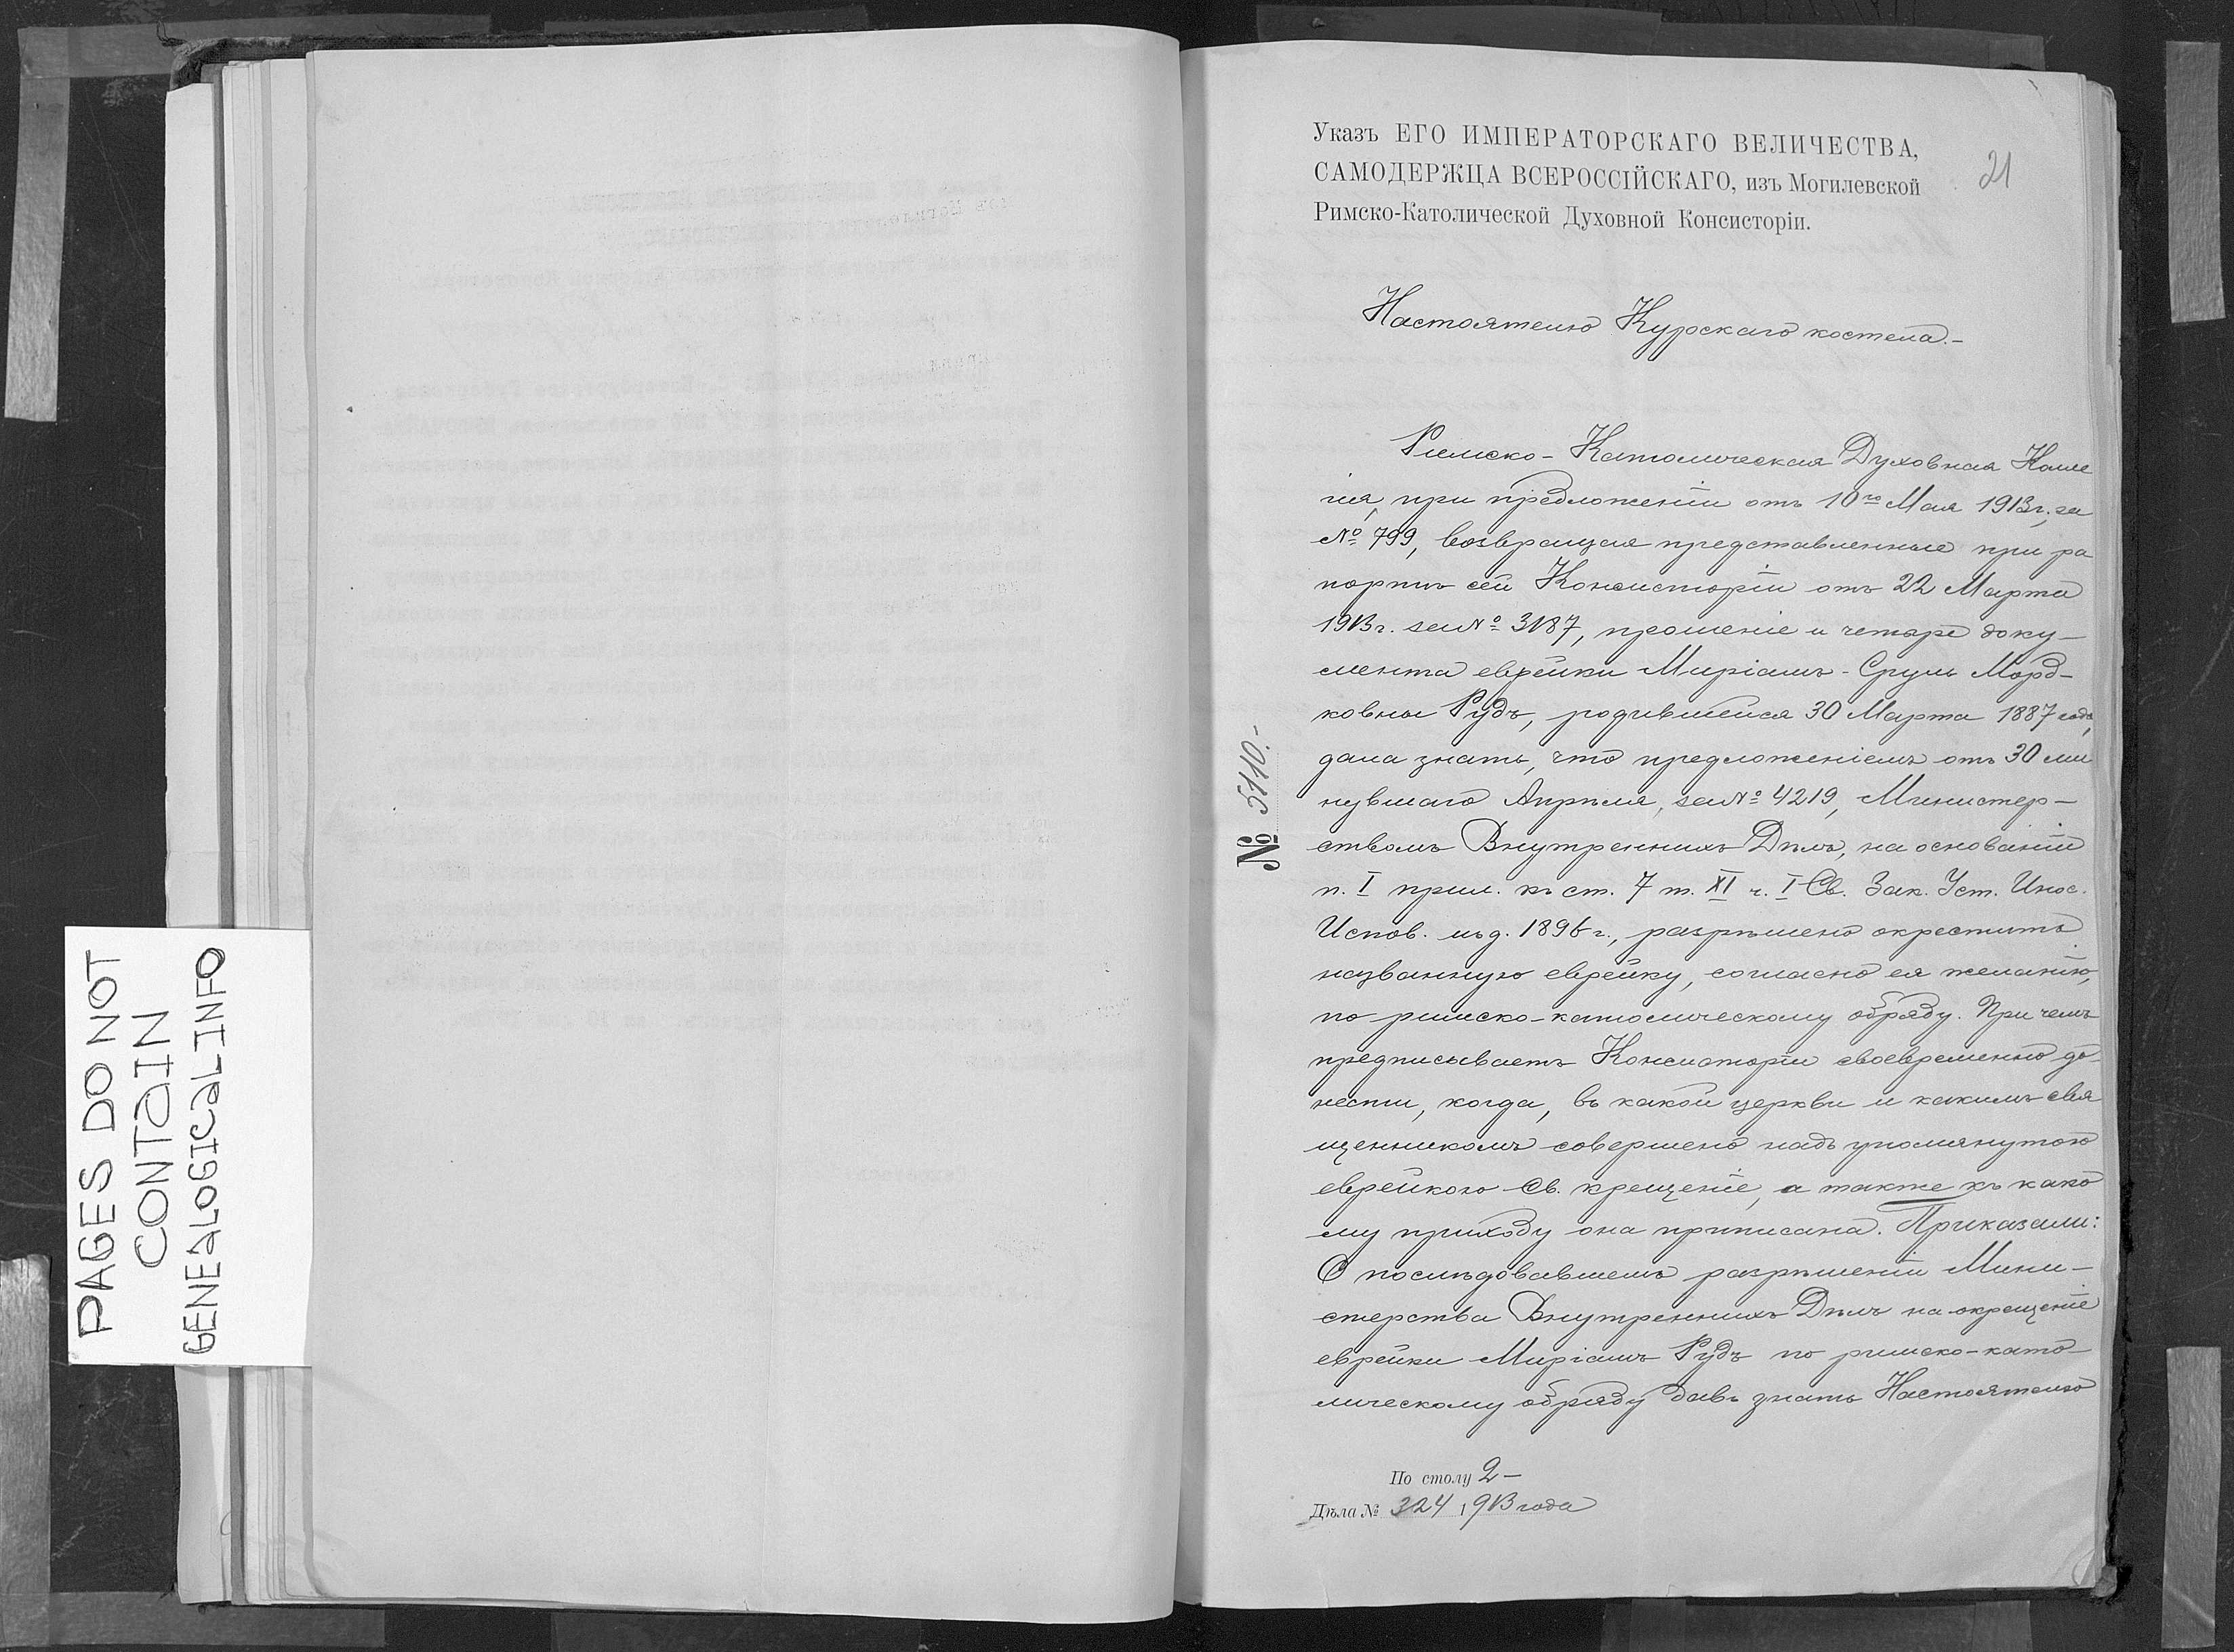 PAGES DO NOT
CONTAIN
GENEALOGICAL INFO
Указъ ЕГО ИМПЕРАТОРСКАГО ВЕЛИЧЕСТВА,
САМОДЕРЖЦА ВСЕРОССІЙСКАГО, изъ Могилевской
Римско-Католической Духовной Консисторіи.
21
Настоятелю Курскаго костела.-
Римско-Католическая Духовная Колле
гія, при предложеніи отъ 10го Мая 1913г. за
№ 799, возвращая представленные при ра
портѣ сей Консисторіи отъ 22 Марта
1913г. за № 3187, прошеніе и четыре доку-
мента еврейки Миріамъ-Сруль Морд-
ковны Рудъ, родившейся 30 Марта 1887 года,
дала знать, что предложеніемъ отъ 30 ми
нувшаго Апрѣля, за № 4219, Министер-
ствомъ Внутреннихъ Дѣлъ, на основаніи
п. I прил. къ ст. 7 т. XI ч. I Св. Зак. Уст. Инос.
Испов. изд. 1896 г., разрѣшено окрестить
названную еврейку, согласно ея желанію,
по римско-католическому обряду. При чемъ
предписываетъ Консисторіи своевременно до-
нести, когда, въ какой церкви и какимъ свя
щенникомъ совершено надъ упомянутою
еврейкою Св. крещеніе, а также къ како
му приходу она приписана. Приказали:
О послѣдовавшемъ разрѣшеніи Мини-
стерства Внутреннихъ Дѣлъ на окрещеніе
еврейки Миріамъ Рудъ по римско-като-
лическому обряду дать знать Настоятелю
№ 5110.-
По столу 2-
Дѣла № 324 1913 года